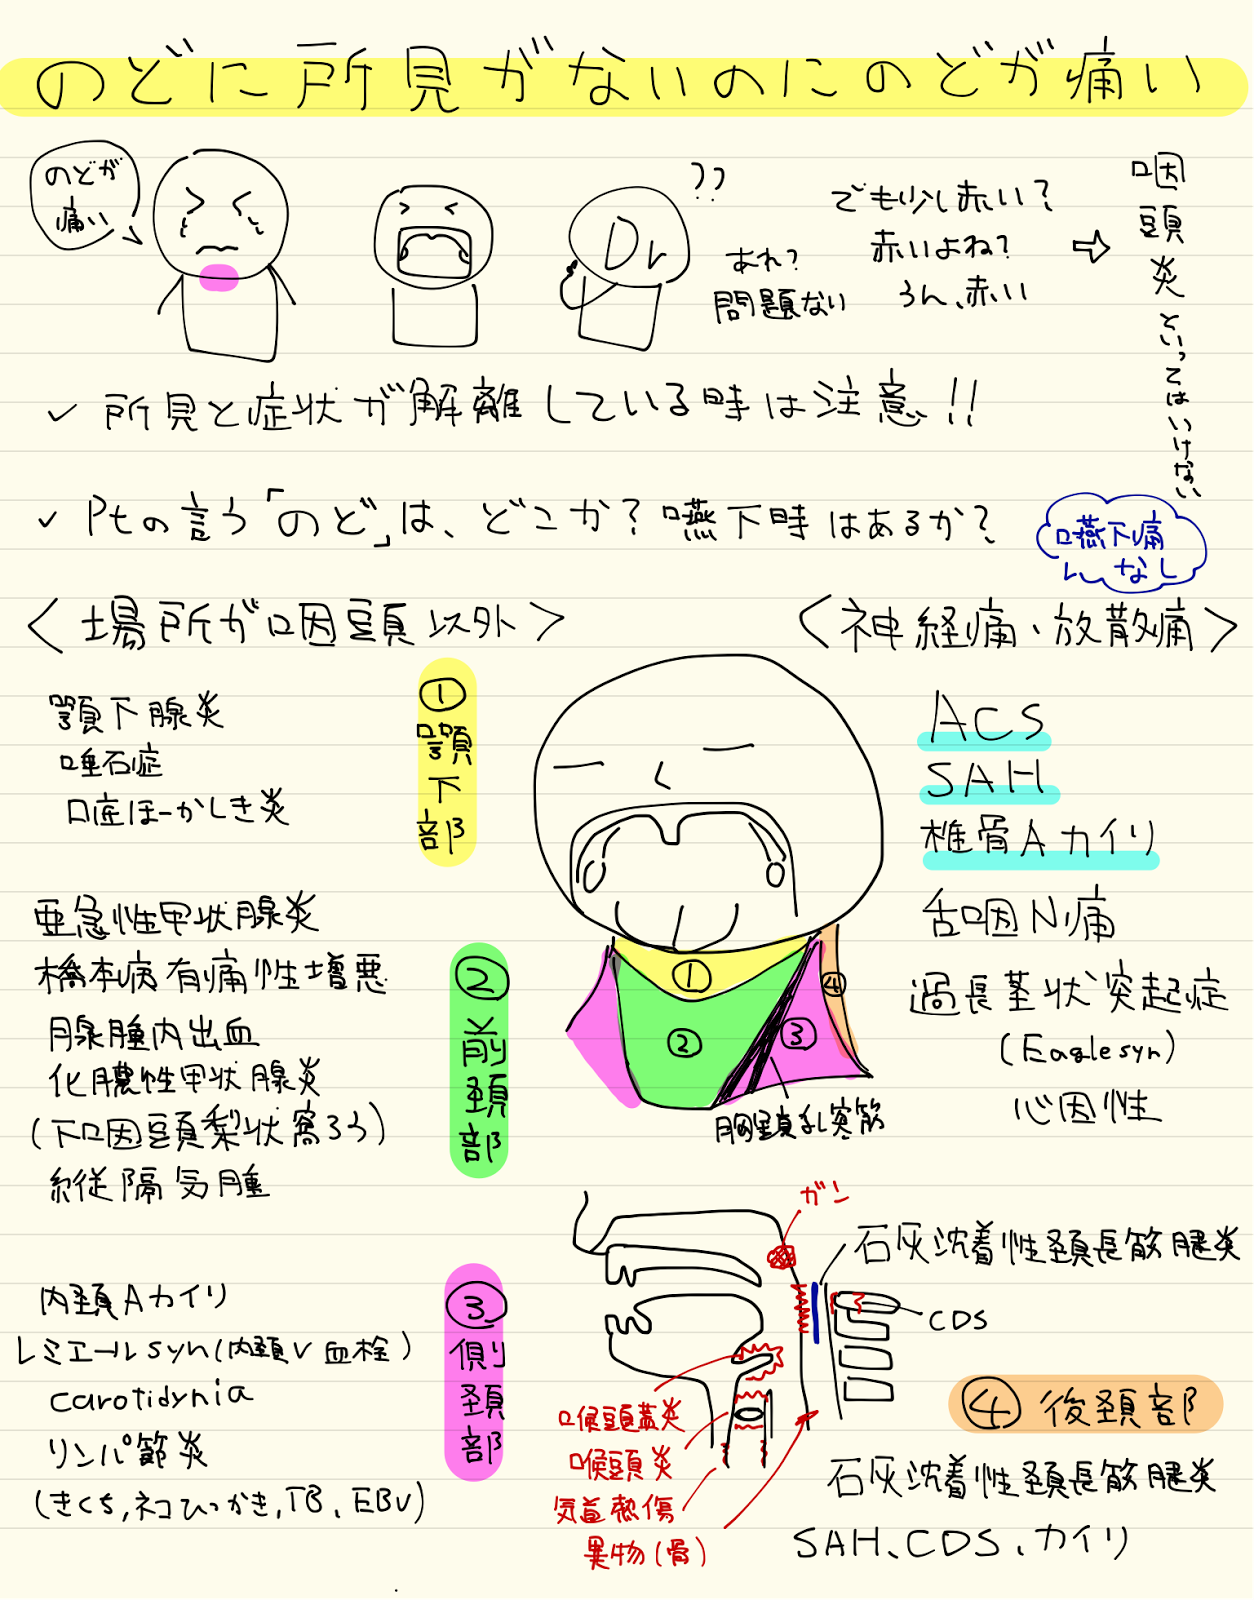 のどに所見がないのにのどが痛い
のどが
痛い
Dr
??
あれ?
問題ない
でも少し赤い?
赤いよね?
うん、赤い
⇨
咽頭炎といってはいけない
✓ 所見と症状が解離している時は注意!!
✓ Ptの言う「のど」は、どこか? 嚥下時はあるか?
嚥下痛
なし
<場所が咽頭以外>
<神経痛、放散痛>
①顎下部
顎下腺炎
唾石症
口底ほーかしき炎
②前頚部
亜急性甲状腺炎
橋本病有痛性増悪
腺腫内出血
化膿性甲状腺炎
(下咽頭梨状窩ろう)
縦隔気腫
③側頚部
内頚Aカイリ
レミエールsyn(内頚V血栓)
carotidynia
リンパ節炎
(きくち,ネコひっかき,TB、EBV)
ACS
SAH
椎骨Aカイリ
舌咽N痛
過長茎状突起症
(Eagle syn)
心因性
①
②
③
④
胸鎖乳突筋
ガン
石灰沈着性頚長筋腱炎
CDS
喉頭蓋炎
喉頭炎
気道熱傷
異物(骨)
④後頚部
石灰沈着性頚長筋腱炎
SAH、CDS、カイリ